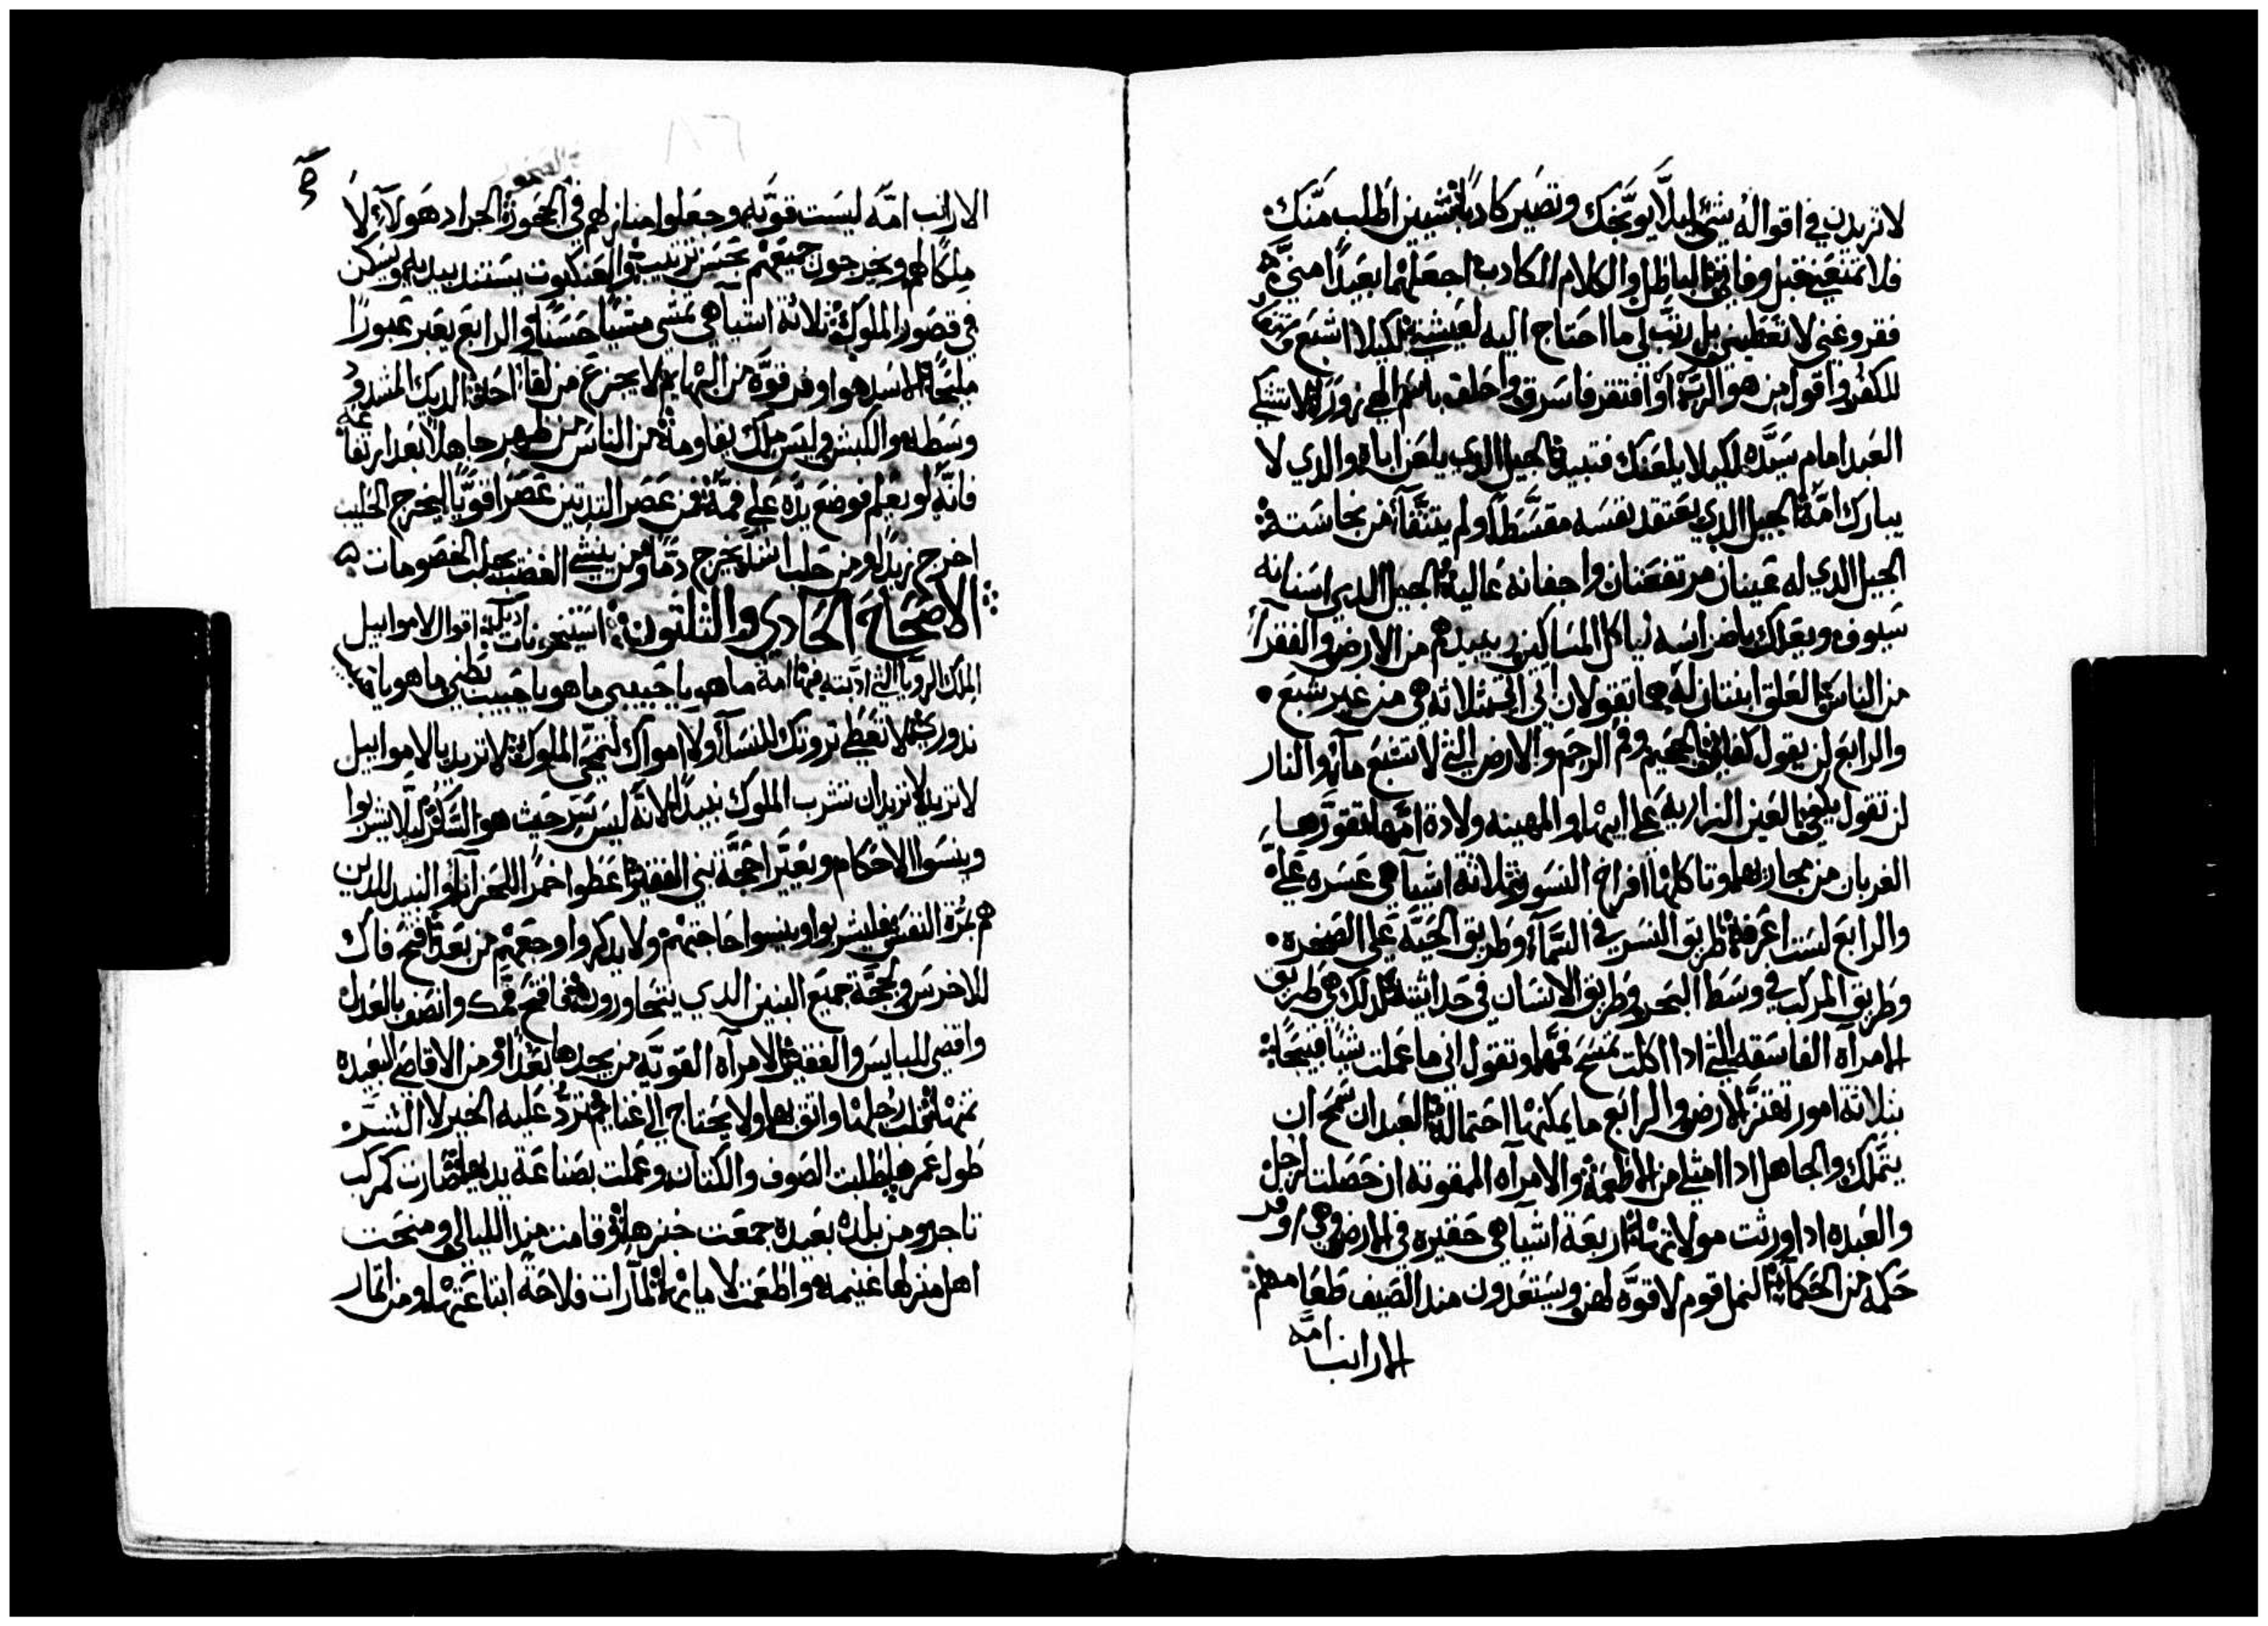 لا تزيدن في اقواله شي ليلا يوبخك وتصير كادبا شيين اطلب منك
فلا تمنعني قبل وفاتي الباطل والكلام الكادب اجعلهما بعيدا مني
فقر وغني لا تعطيني بل رتب لي ما احتاج اليه لعيشتي لكيلا اشبع
للكفر واقول من هو الرب او افتقر فاسرق واحلف باسم الهي زورا لا تشكي
العبد امام سيده لكيلا يلعنك فتبيد الجيل الدي يلعن اباه والدي لا
يبارك امه الجيل الدي يعتقد نفسه مقسطا ولم يتنقا من نجاسته
الجيل الدي له عينان مرتفعتان واجفانه عالية الجيل الدي اسنانه
سيوف ويعلك باضراسه لياكل المساكين ويبيدهم من الارض والفقرا
من الناس العلق ابنتان له هما تقولان ايتي ايتي ثلاثه هي من غير شبع
والرابع لن يقول كفاني الجحيم وفم الرحم والارض التي لا تشبع مآء والنار
لن تقول يكفي العين الزاريه علي ابيها والمهينه ولادة امها تقورها
الغربان من مجاريها وتاكلها افراخ النسور ثلاثة اشيآ هي عسره علي
والرابع لست اعرفه طريق النسر في السمآ وطريق الحية علي الصخره
وطريق المركب في وسط البحر وطريق الانسان في حداثته كدلك هي طريق
الامرآه الفاسقه التي ادا اكلت تمسح فمها وتقول اني ما عملت شيا قبيحا
بثلاثة امور تهتز الارض والرابع ما يمكنها احتماله العبد ان سمح ان
يتملك والجاهل ادا امتلي من الاطعمة والامرآه الممقوته ان حصلت لرجل
والعبده ادا ورثت مولاتها اربعة اشيآ هي حقيره في الارض وهي اوفر
حكمه من الحكمآ النمل قوم لا قوة لهن ويستعدون مند الصيف طعامهم
الارانب امة
الارانب امة ليست قويه وجعلوا منازلهم في الجحور الجراد هولآء لا
ملكا لهم ويخرجون جميعهم بحسن ترتيب والعنكبوت يستند بيديه ويسكن
في قصور الملوك ثلاثة اشيآ هي تمشي مشيا حسنا والرابع يعبر عبورا
مليحا الاسد هو اوفر قوة من البهايم لا يجزع من لقا احد الديك المشدود
وسطه والكبش وليس ملك يقاومه من الناس من ظهر جاهلا بعد ارتفاعه
فانه لو يعلم فوضع يده علي فمه فمن عصر الثديين عصرا قويا ليخرج الحليب
اخرج زبدا ومن حلب اشد يخرج دما ومن ينشي الغضب يجلب الخصومات
الاصحاح الحادي والثلثون استخبرنات دبكة اقوال لاموابيل
الملك الرويا التي ادبته فيها امه ما هو يا حبيبي ما هو يا حبيب بطني ما هو يا حبيب
ندوري لا تعطي ثروتك للنسآ ولا امواك لتمحي الملوك لا تريد يا لاموابيل
لا تريد لا تريد ان تشرب الملوك نبيدا لانه ليس سر حيث هو السكر ليلا يشربوا
وينسوا الاحكام ويغيرا حجة بني الفقير اعطوا خمرا للحزاني والنبيد للدين
هم بمرة النفس فليشربوا وينسوا حاجتهم ولا يدكروا وجعهم من بعد افتح فاك
للاخرس ولحجة جميع البنين الدي يتحاورون افتح فمك وانصف بالعدل
واقضي للبايس والفقير الامرآه القوية من يجدها بعدا ومن الاقاصي البعيده
ثمنها قلب رجلها واثق بها ولا يحتاج الي غنايم ترد عليه الخير لا الشر
طول عمرها طلبت الصوف والكتان وعملت بصناعة يديها صارت كمركب
تاجر ومن بلده بعيدة جمعت خبزها وقامت مند الليالي ومنحت
اهل منزلها غنيمه واطعمت لامايها تامرات فلاحة ابتاعتها ومن اتمار